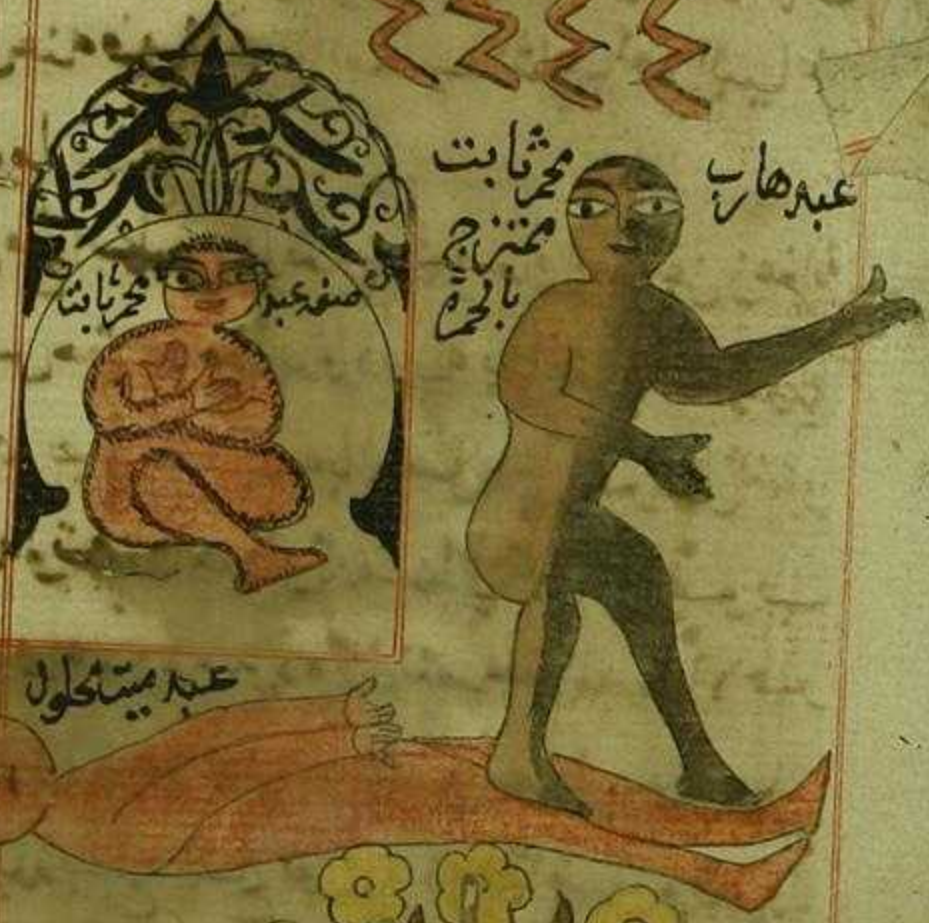 عبد هارب
محمر ثابت
ممتزج
بالحمرة
صفه عبد محمر ثابت
عبد ميت محلول